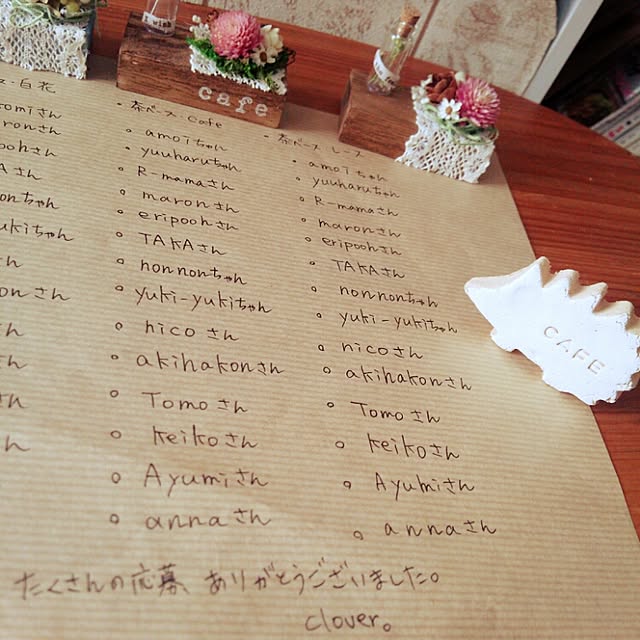 cafe
白花
omiさん
aronさん
poohさん
KAさん
nonちゃん
ukiちゃん
さん
onさん
さん
さん
さん
さん
・茶ベース・Cafe
。amoiちゃん
。yuuharuちゃん
。R-mamaさん
。maronさん
。eripoohさん
。TAKAさん
。nonnonちゃん
。yuki-yukiちゃん
。nicoさん
。akihakonさん
。Tomoさん
。Keikoさん
。Ayumiさん
。annaさん
・茶ベース レース
。amoiちゃん
。yuuharuちゃん
。R-mamaさん
。maronさん
。eripoohさん
。TAKAさん
。nonnonちゃん
。yuki-yukiちゃん
。nicoさん
。akihakonさん
。Tomoさん
。Keikoさん
。Ayumiさん
。annaさん
たくさんの応募、ありがとうございました。
clover。
CAFE